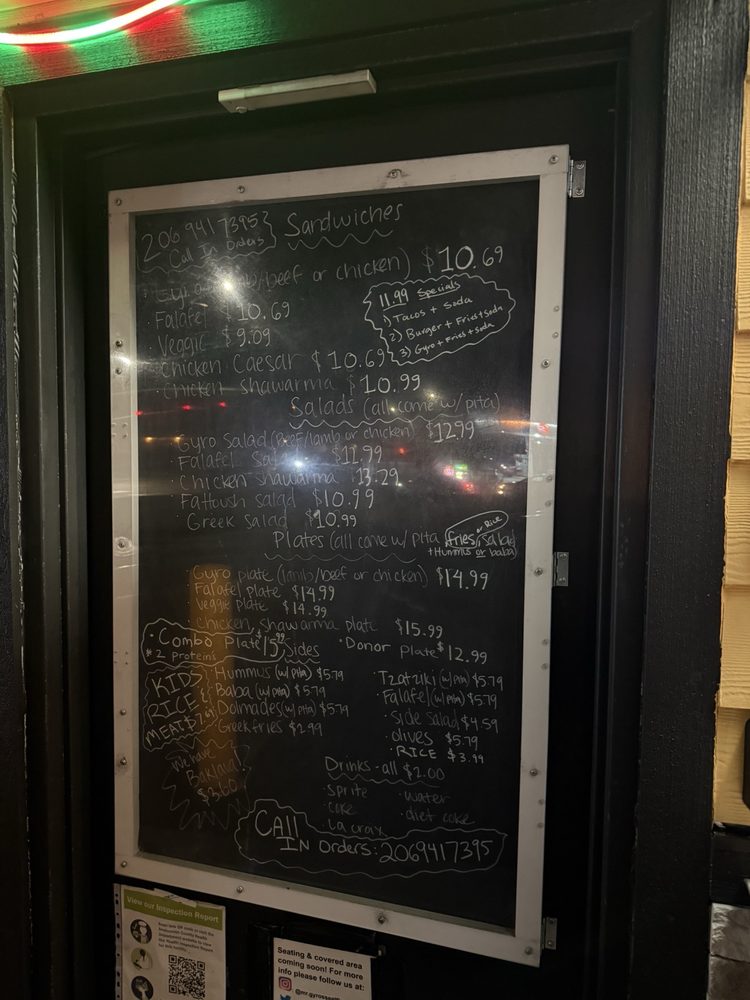 206 941 7395
Call In Orders
Sandwiches
(w/beef or chicken) $10.69
Falafel $10.69
Veggie $9.09
11.99 Specials
1) Tacos + Soda
2) Burger + Fries + Soda
3) Gyro + Fries + soda
Chicken Caesar $10.69
Chicken shawarma $10.99
Salads (all come w/pita)
Gyro Salad (Beef/lamb or chicken) $12.99
Falafel $11.99
Chicken shawarma 13.29
Fattoush salad $10.99
Greek Salad $10.99
or Rice
Plates (all come w/ pita, fries, salad
+Hummus or baba)
Gyro plate (lamb/beef or chicken) $14.99
Falafel plate $14.99
Veggie plate $14.99
Chicken shawarma plate $15.99
Combo Plate $15.99
* 2 proteins
Donor plate $12.99
Sides
Hummus (w/ pita) $5.79
Baba (w/ pita) $5.79
Dolmades (w/ pita) $5.79
Greek fries $2.99
Tzatziki (w/ pita) $5.79
Falafel (w/ pita) $5.79
Side Salad $4.59
olives $5.79
RICE $3.99
KIDS
RICE &
MEAT
We have
$3.60
Drinks - all $2.00
sprite
coke
La croix
water
diet coke
Call
IN Orders: 2069417395
View our Inspection Report
Seating & covered area
coming soon! For more
info please follow us at: